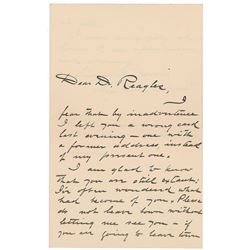 Dear Dr. Reagles,
I
fear that by inadvertence
I left you a wrong card
last evening – one with
a former address instead
of my present one.
I am glad to know
that you are still extant;
I've often wondered what
had become of you. Please
do not leave town without
letting me see you, if
you are going to leave town